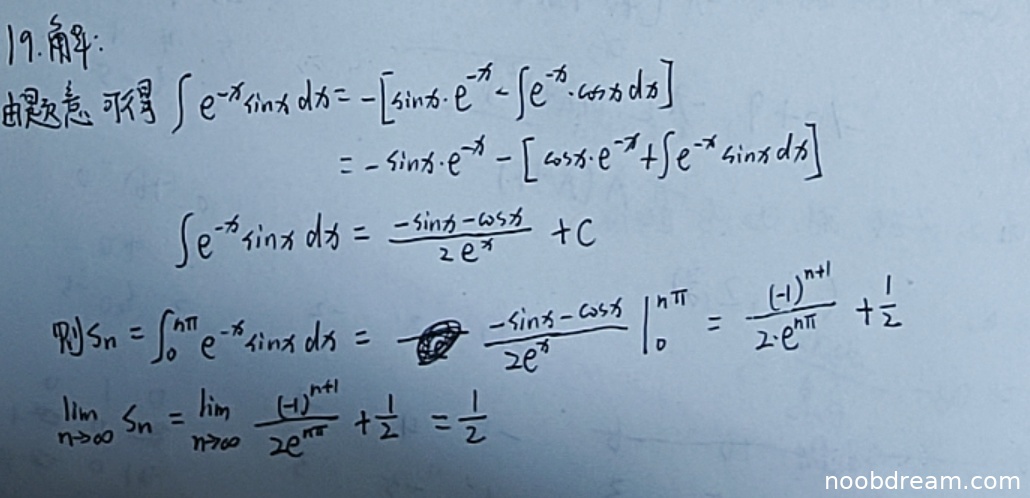 19.解:
由题意可得 ∫e^{-x} sinx dx = -[sinx·e^{-x} - ∫e^{-x}·cosx dx]
= -sinx·e^{-x} - [cosx·e^{-x} + ∫e^{-x} sinx dx]
∫e^{-x} sinx dx = \frac{-sinx-cosx}{2e^x} + C
则 S_n = ∫_0^{nπ} e^{-x} sinx dx = \frac{-sinx-cosx}{2e^x} |_0^{nπ} = \frac{(-1)^{n+1}}{2·e^{nπ}} + \frac{1}{2}
\lim_{n→∞} S_n = \lim_{n→∞} \frac{(-1)^{n+1}}{2e^{nπ}} + \frac{1}{2} = \frac{1}{2}
noobdream.com